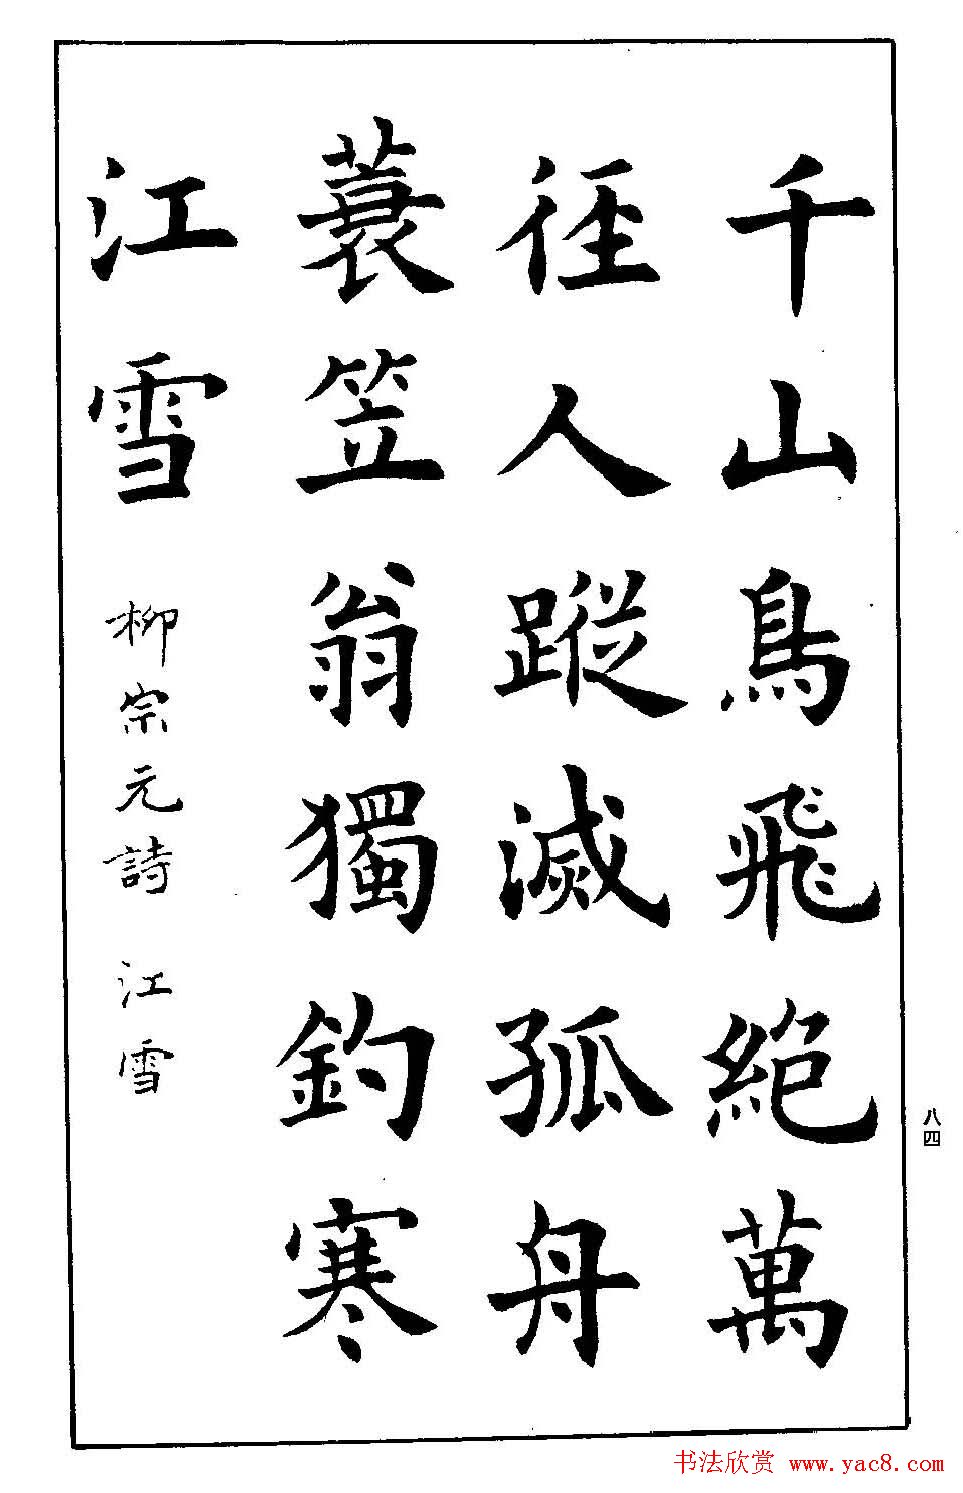 千山鳥飛絕萬
徑人蹤滅孤舟
蓑笠翁獨釣寒
江雪
柳宗元詩 江雪
八四
书法欣赏 www.yac8.com